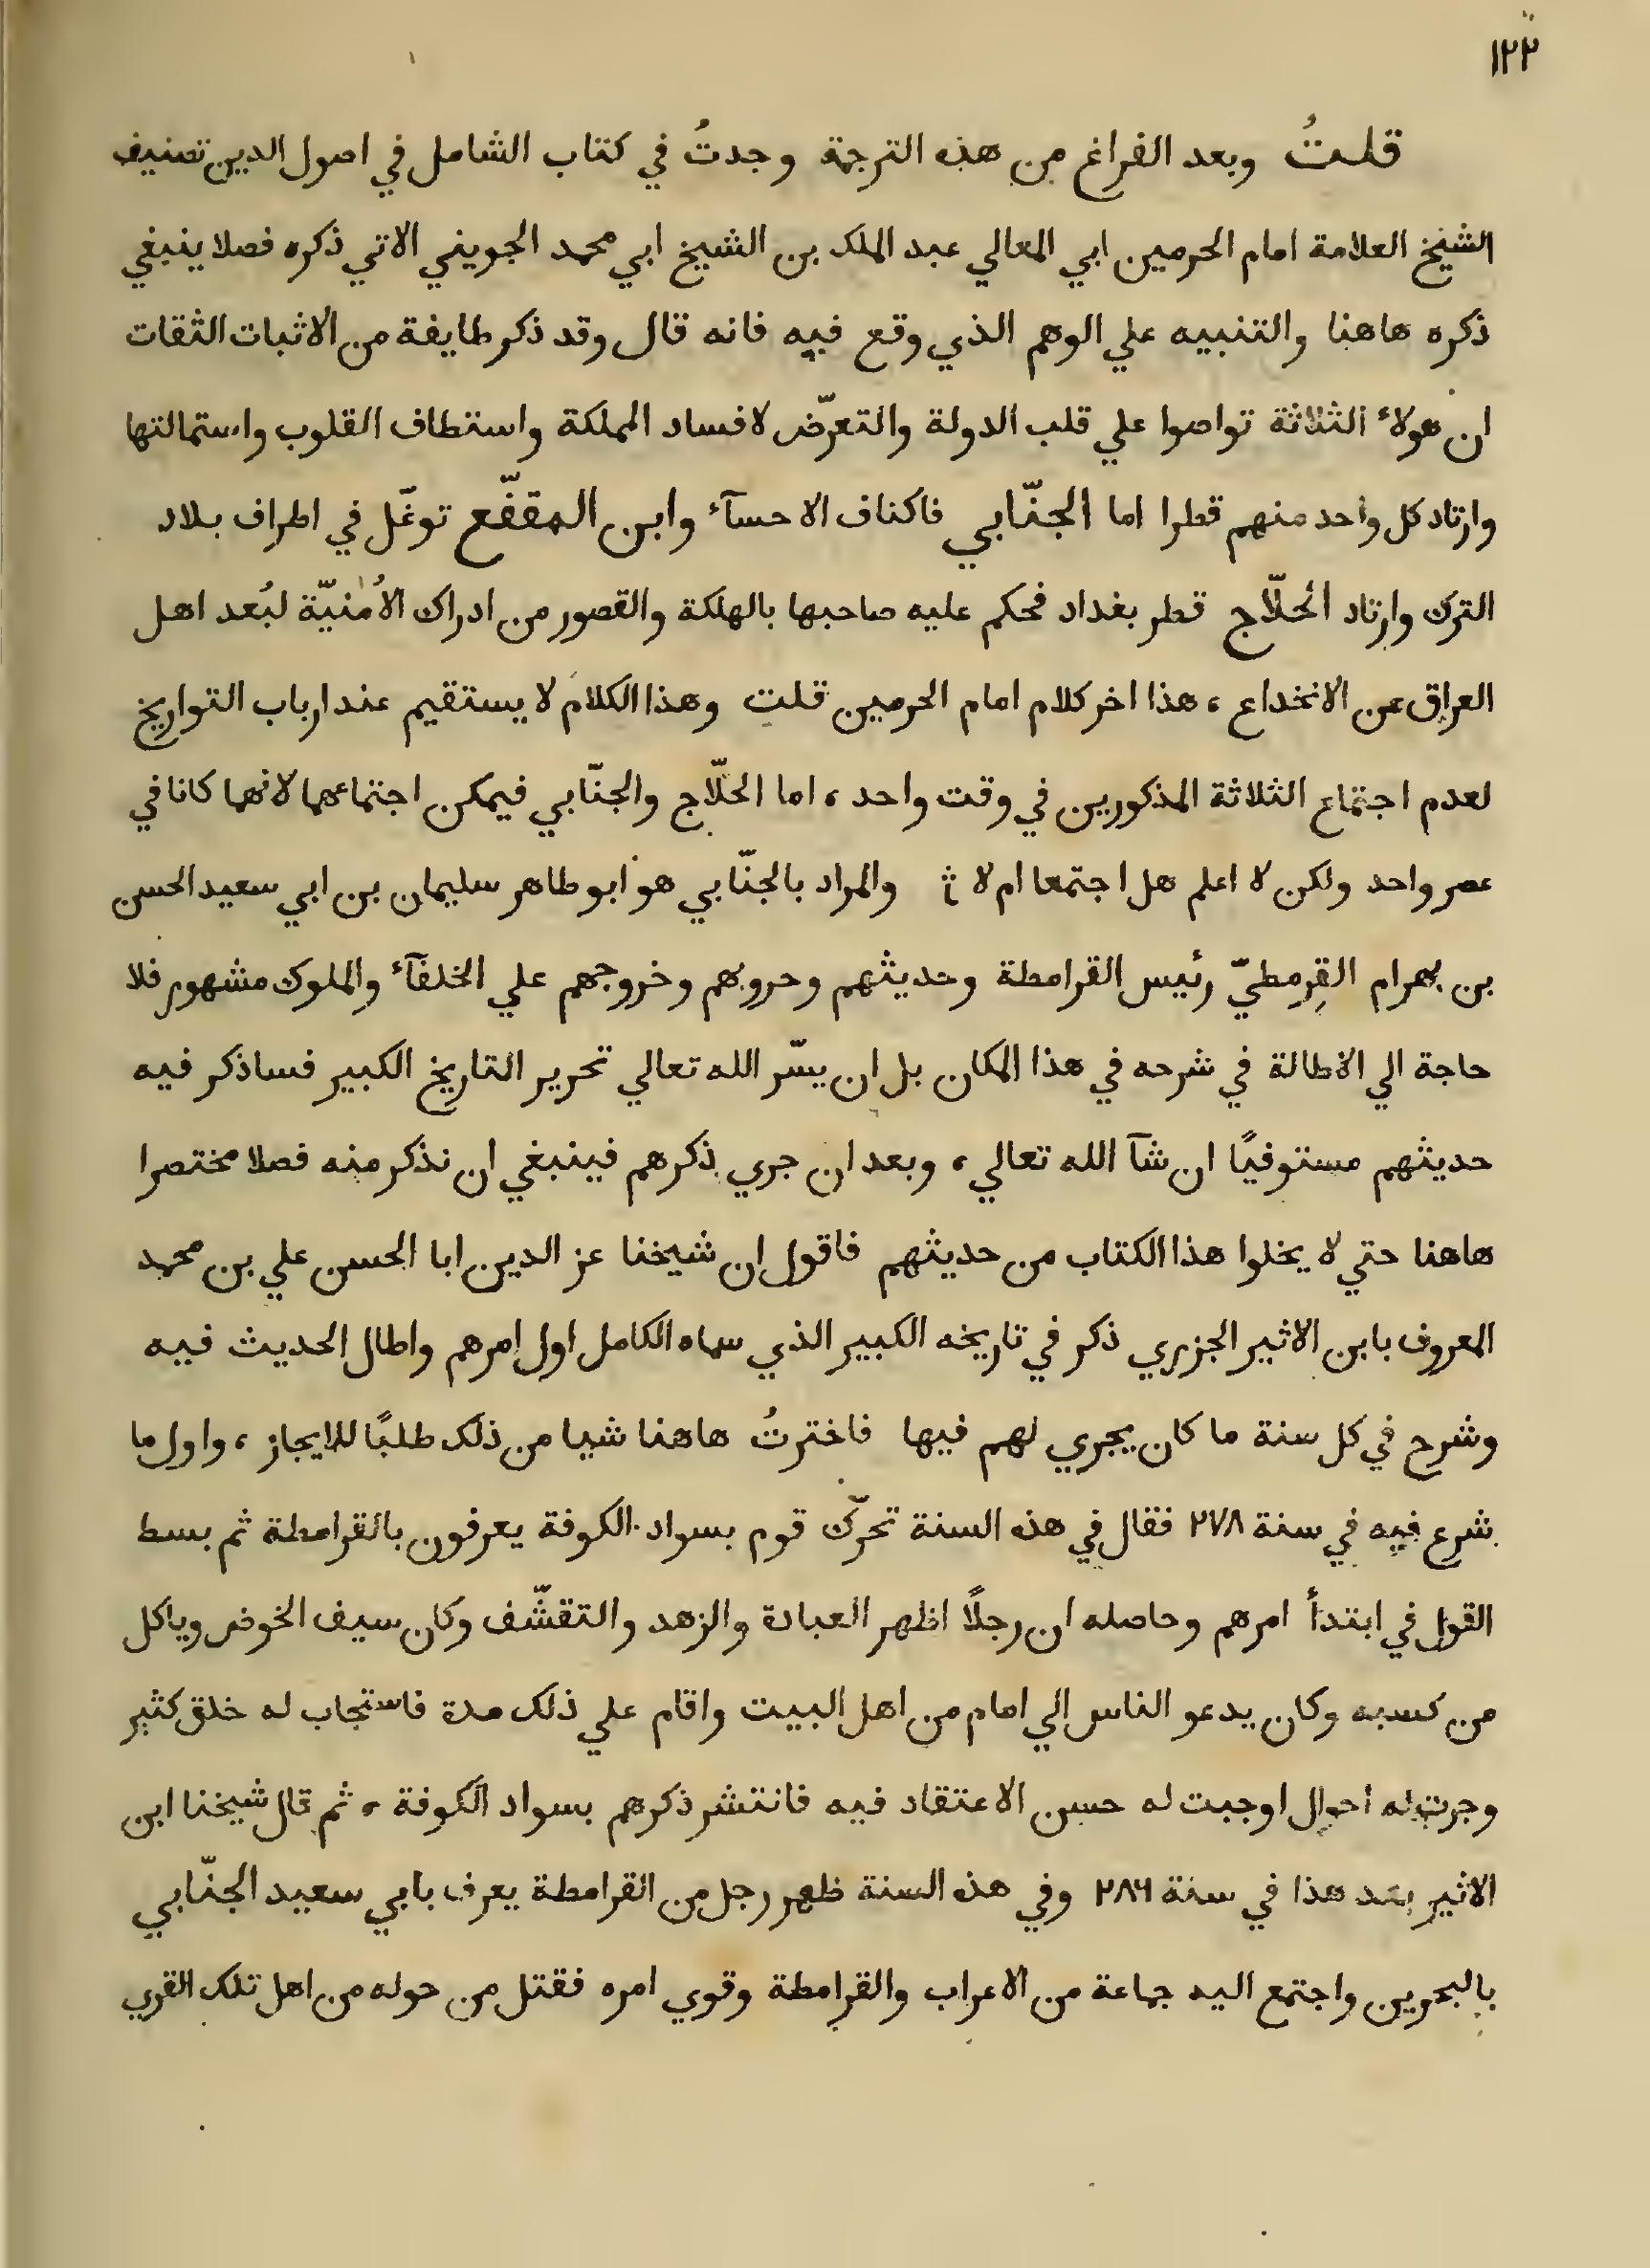 ١٢٢
قلتُ وبعد الفراغ من هذه الترجمة وجدتُ في كتاب الشامل في اصول الدين تصنيف
الشيخ العلامة امام الحرمين ابي المعالي عبد الملك بن الشيخ ابي محمد الجويني الاتي ذكره فصلا ينبغي
ذكره هاهنا والتنبيه علي الوهم الذي وقع فيه فانه قال وقد ذكر طايفة من الاثبات الثقات
ان هولاء الثلاثة تواصوا علي قلب الدولة والتعرّض لافساد المملكة واستطاف القلوب واستمالتها
وارتاد كل واحد منهم قطرا اما الجنّابي فاكناف الاحسآء وابن المقفّع توغّل في اطراف بلاد
الترك وارتاد الحلّاج قطر بغداد فحكم عليه صاحبها بالهلكة والقصور من ادراك الأُمنيّة لبُعد اهل
العراق عن الانخداع ، هذا اخر كلام امام الحرمين قلت وهذا الكلام لا يستقيم عند ارباب التواريخ
لعدم اجتماع الثلاثة المذكورين في وقت واحد ، اما الحلّاج والجنّابي فيمكن اجتماعهما لانهما كانا في
عصر واحد ولكن لا اعلم هل اجتمعا ام لا والمراد بالجنّابي هو ابو طاهر سليمان بن ابي سعيد الحسن
بن بهرام القِرمطيّ رئيس القرامطة وحديثهم وحروبهم وخروجهم علي الخلفآء والملوك مشهور فلا
حاجة الي الاطالة في شرحه في هذا المكان بل ان يسّر الله تعالي تحرير التاريخ الكبير فساذكر فيه
حديثهم مستوفيًا ان شآ الله تعالي ، وبعد ان جري ذكرهم فينبغي ان نذكر منه فصلا مختصرا
هاهنا حتي لا يخلوا هذا الكتاب من حديثهم فاقول ان شيخنا عز الدين ابا الحسن علي بن محمد
المعروف بابن الاثير الجزري ذكر في تاريخه الكبير الذي سماه الكامل اول امرهم واطال الحديث فيه
وشرح في كل سنة ما كان يجري لهم فيها فاخترتُ هاهنا شيا من ذلك طلبًا للايجاز ، واول ما
شرع فيه في سنة ٢٧٨ فقال في هذه السنة تحرّك قوم بسواد الكوفة يعرفون بالقرامطة ثم بسط
القول في ابتدأ امرهم وحاصله ان رجلًا اظهر العبادة والزهد والتقشّف وكان سيف الخوض وياكل
من كسبه وكان يدعو الناس الي امام من اهل البيت واقام علي ذلك مدة فاستجاب له خلق كثير
وجرت له احوال اوجبت له حسن الاعتقاد فيه فانتشر ذكرهم بسواد الكوفة ، ثم قال شيخنا ابن
الاثير بعد هذا في سنة ٢٨٦ وفي هذه السنة ظهر رجل من القرامطة يعرف بابي سعيد الجنّابي
بالبحرين واجتمع اليه جماعة من الاعراب والقرامطة وقوي امره فقتل من حوله من اهل تلك القري